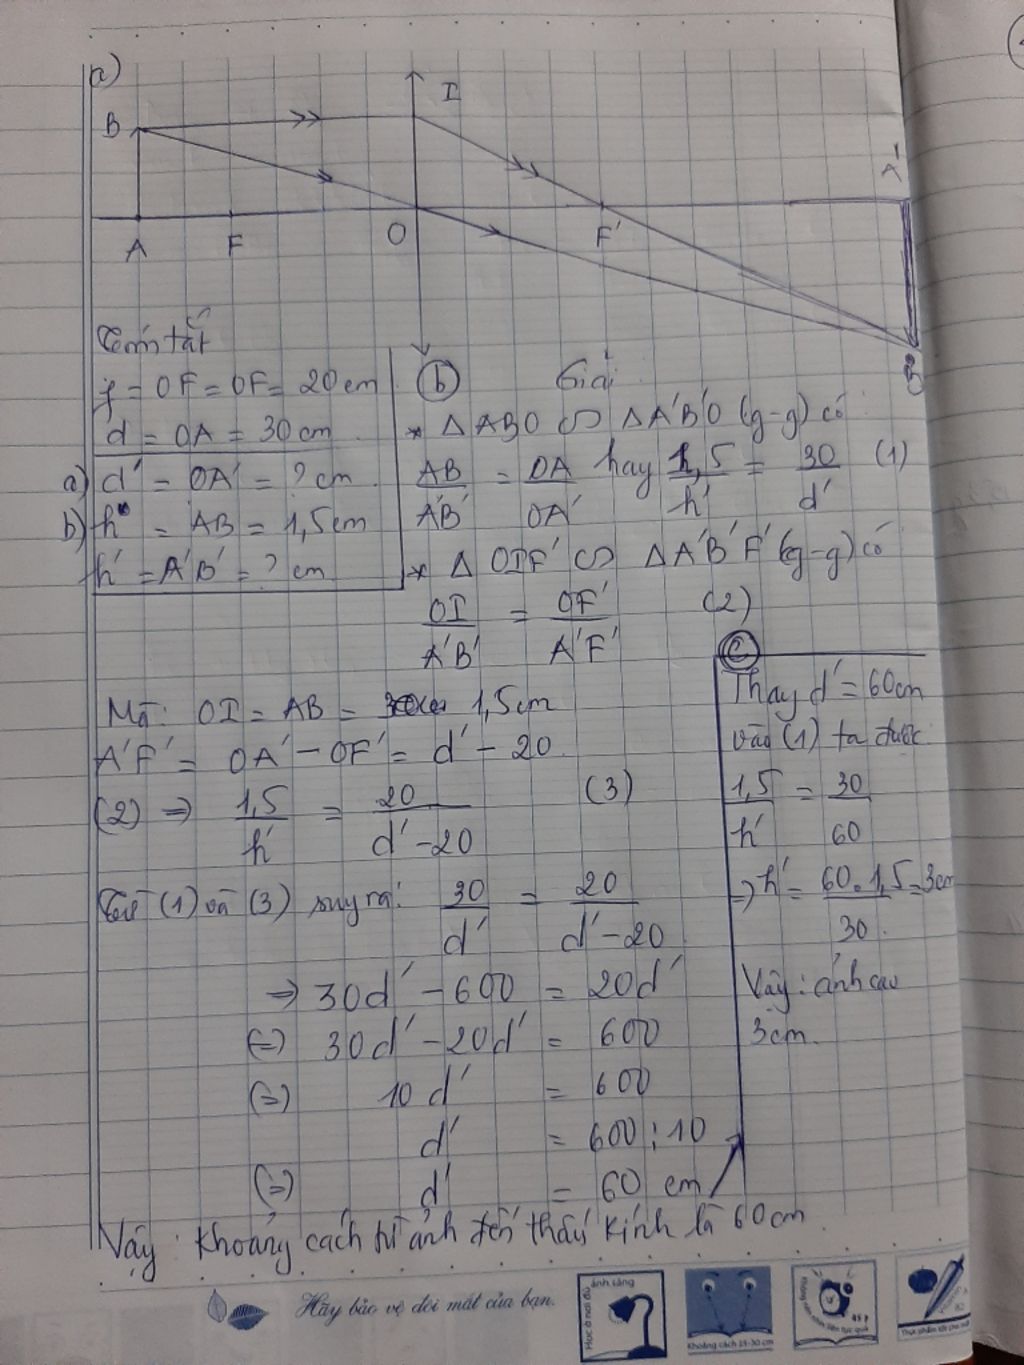 a)
I
B
A'
A
F
O
F'
B'
Tóm tắt
f = OF = OF = 20cm
d = OA = 30cm
a) d' = OA' = ? cm
b) h = AB = 1,5cm
h' = A'B' = ? cm
b) Giải
* Δ ABO ∽ Δ A'B'O (g-g) có
AB/A'B' = OA/OA' hay 1,5/h' = 30/d' (1)
* Δ OIF' ∽ Δ A'B'F' (g-g) có
OI/A'B' = OF'/A'F' (2)
Mà: OI = AB = 1,5cm
A'F' = OA' - OF' = d' - 20
(2) => 1,5/h' = 20/d'-20 (3)
Từ (1) và (3) suy ra: 30/d' = 20/d'-20
=> 30d' - 600 = 20d'
(=) 30d' - 20d' = 600
(=) 10d' = 600
d' = 600 : 10
(=) d' = 60 cm
Vậy: Khoảng cách từ ảnh đến thấu kính là 60cm.
c)
Thay d' = 60cm
vào (1) ta được
1,5/h' = 30/60
=> h' = 60.1,5/30 = 3cm
Vậy: ảnh cao
3cm.
Hãy bảo vệ đôi mắt của bạn.
Học ở nơi đủ ánh sáng
Khoảng cách 25-30 cm